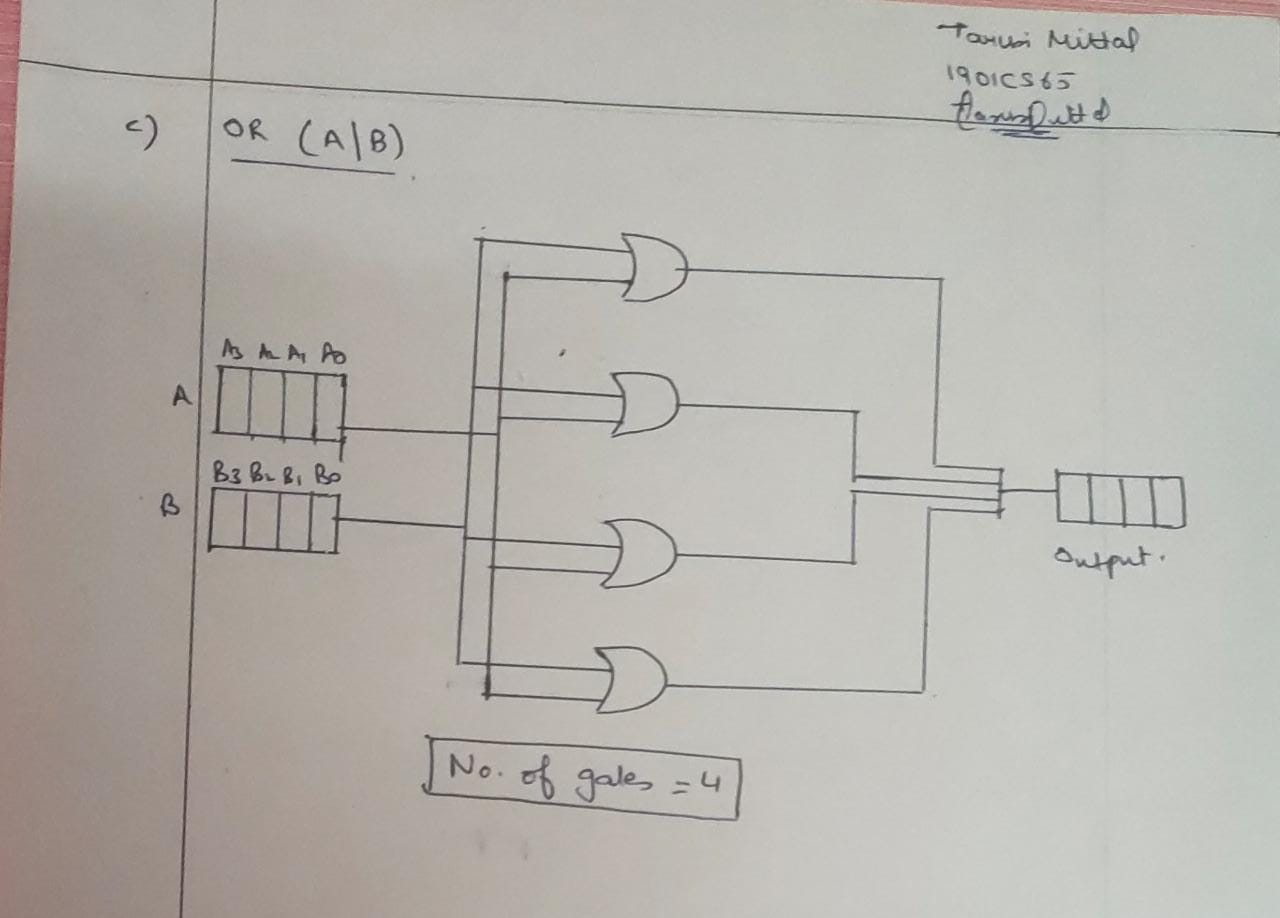 Tarusi Mittal
1901CS65
c) OR (A|B)
A3 A2 A1 A0
A
B3 B2 B1 B0
B
Output.
No. of gates = 4